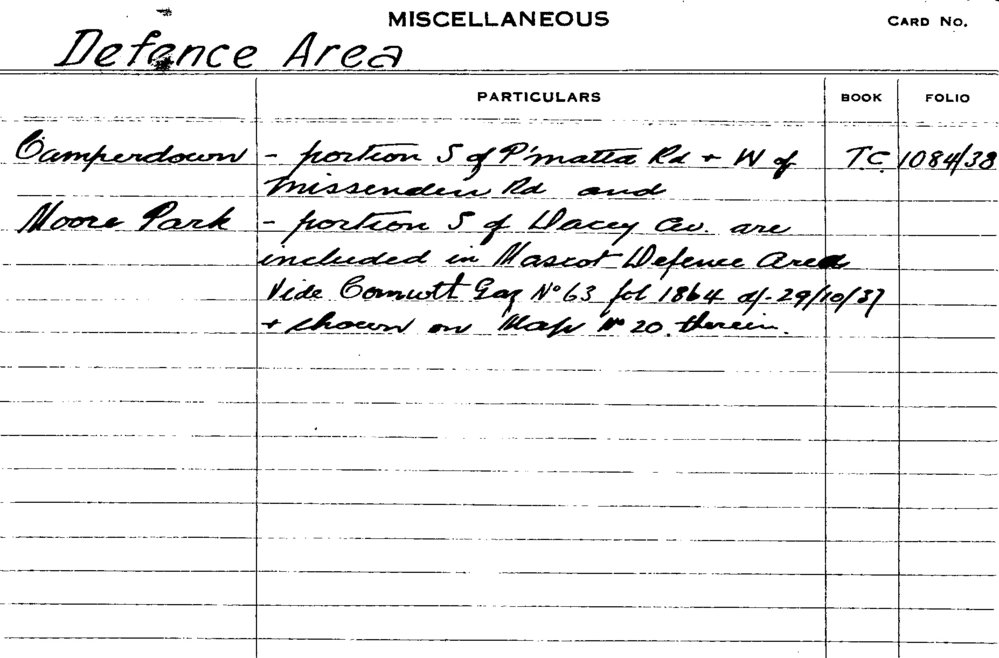 MISCELLANEOUS CARD No.
Defence Area
PARTICULARS BOOK FOLIO
Camperdown - portion S of P'matta Rd + W of T.C. 1084/38
Missenden Rd and
Moore Park - portion S of Dacey Av. are
included in Mascot Defence Area
Vide Comwtt Gaz No 63 fol 1864 of 29/10/37
+ shown on Map No 20 therein.